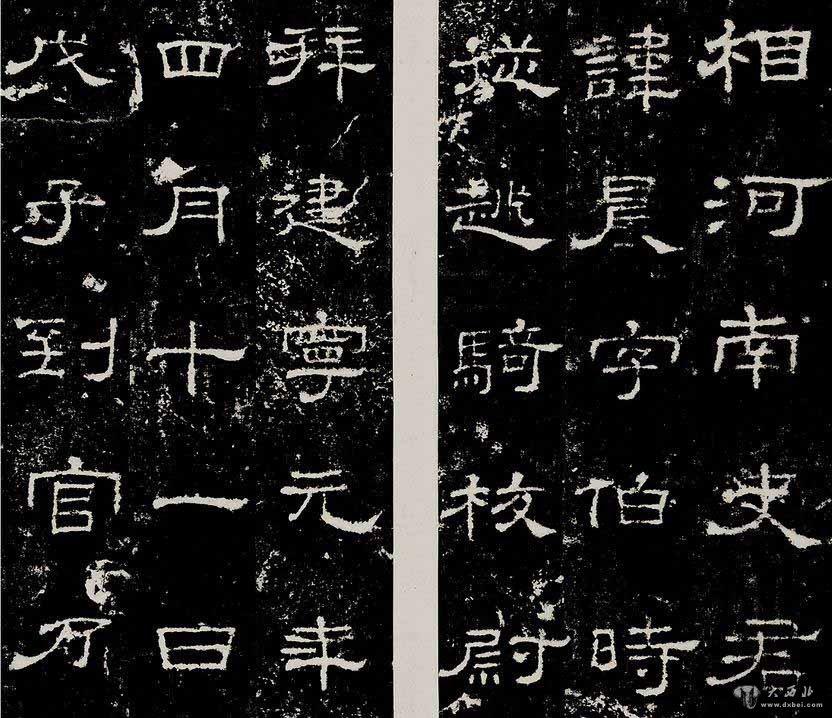 相河南史君
諱晨字伯時
從越騎校尉
拜建寧元年
四月十一日
戊子到官乃
大西北
www.dxbei.com